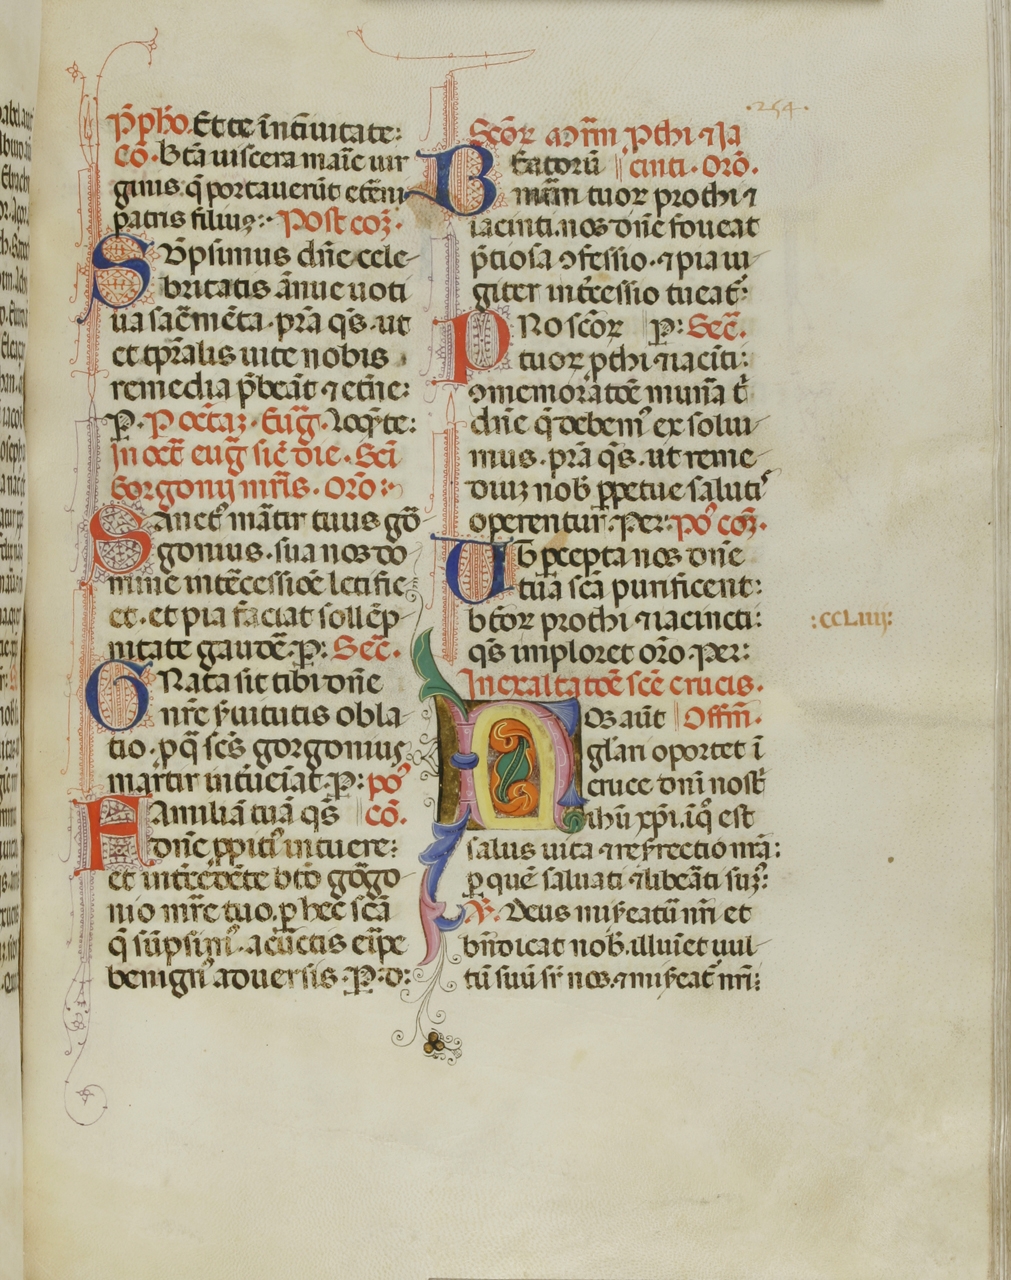 .254.
P̄pħo. Et te in natiuitate:
Cō. Bt̄a uiscera marīe uir
ginis. q̄ portauerūt et̄erni
patris filiuꝫ: Post coꝫ.
Sūpsimus dn̄e cele
britatis ānue uoti
ua sac̄men̄ta. pr̄a q̄s. ut
et tp̄ralis uite nobis
remedia p̄beāt ⁊ et̄ne:
P. P octāꝫ. Euḡ. Req̄ te:
In oct̄ euḡ sic̄ die. Sc̄i
Gorgonij mr̄is. Oro:
Sanctꝰ mr̄tir tuus gō
gonius. sua nos do
mine int̄cessiōe letific
et. et pia faciat sollēp
nitate gaudē. P: Sec̄.
Grata sit tibi dn̄e
nr̄e s̄uitutis obla
tio. p q̄ sc̄s gorgonius
martir int̄uen̄iat. P: pꝰ
Familiā tuā q̄s cō.
dn̄e ppitiꝰ intuere:
et int̄cedēte bt̄o gorgo
nio mr̄e tuo. p hec sc̄a
q̄ sūpsimꝰ. a cūctis eīpe
benignꝰ aduersis. P. d:
Sc̄oꝝ mr̄m pthi ⁊ Ja
Beatorū cinti. Orō.
mr̄m tuoꝝ prothi ⁊
iacinti. nos dn̄e foueat
p̄tiosa ꝯfessio. ⁊ pia iu
giter int̄cessio tueat̄:
Pro sc̄oꝝ P: Sec̄.
tuoꝝ pthi ⁊ iacīti:
ꝯmemoratōe mun̄a t̄
dn̄e q̄ debemꝰ exsolui
mus. pr̄a q̄s. ut reme
diuꝫ nob̄ ppetue salutis
operentur. Per: pꝰ coꝫ.
Ut pcepta nos dn̄e
tua sc̄a purificent:
btōꝝ prothi ⁊ iacincti:
q̄s imploret or̄o. Per:
:CCLiiij:
In exaltatōe sc̄e crucis.
Nos aūt Offm̄.
gl̄ari oportet ī
cruce dn̄i nost̄
ihū xp̄i. i q̄ est
salus uita ⁊ resr̄rectio nr̄a:
p quē saluati ⁊ libe̅ati sūꝫ:
Ps. Deus mis̄eatū nr̄i et
bn̄dicat nob̄. illuīet uul
tū suū sr̄ nos. ⁊ mis̄eat̄ nr̄i: